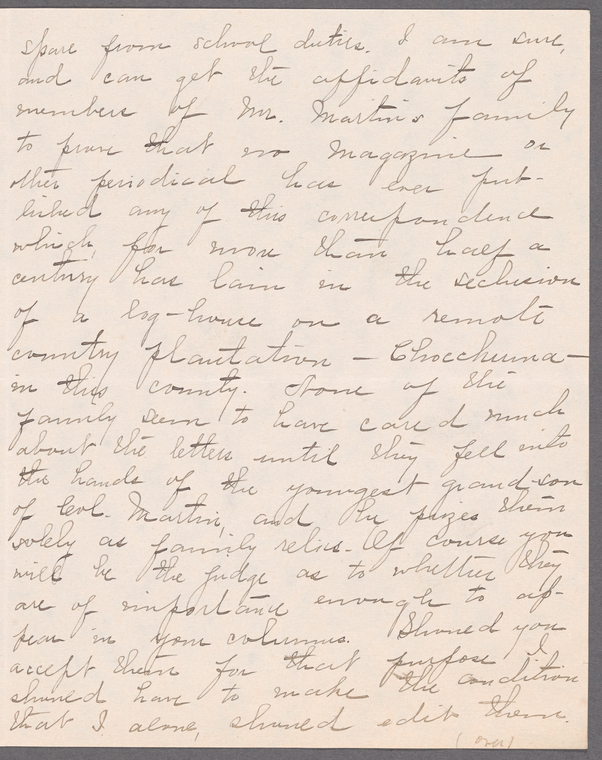 spare from school duties. I am sure,
and can get the affidavits of
members of Mr. Martin's family
to prove that no magazine or
other periodical has ever pub-
lished any of this correspondence
which, for more than half a
century has lain in the seclusion
of a log-house on a remote
country plantation — Chocchuma —
in this county. None of the
family seem to have cared much
about the letters until they fell into
the hands of the youngest grand-son
of Col. Martin, and he prizes them
solely as family relics. Of course you
will be the judge as to whether they
are of importance enough to ap-
pear in your columns. Should you
accept them for that purpose I
should have to make the condition
that I alone, should edit them.
(over)